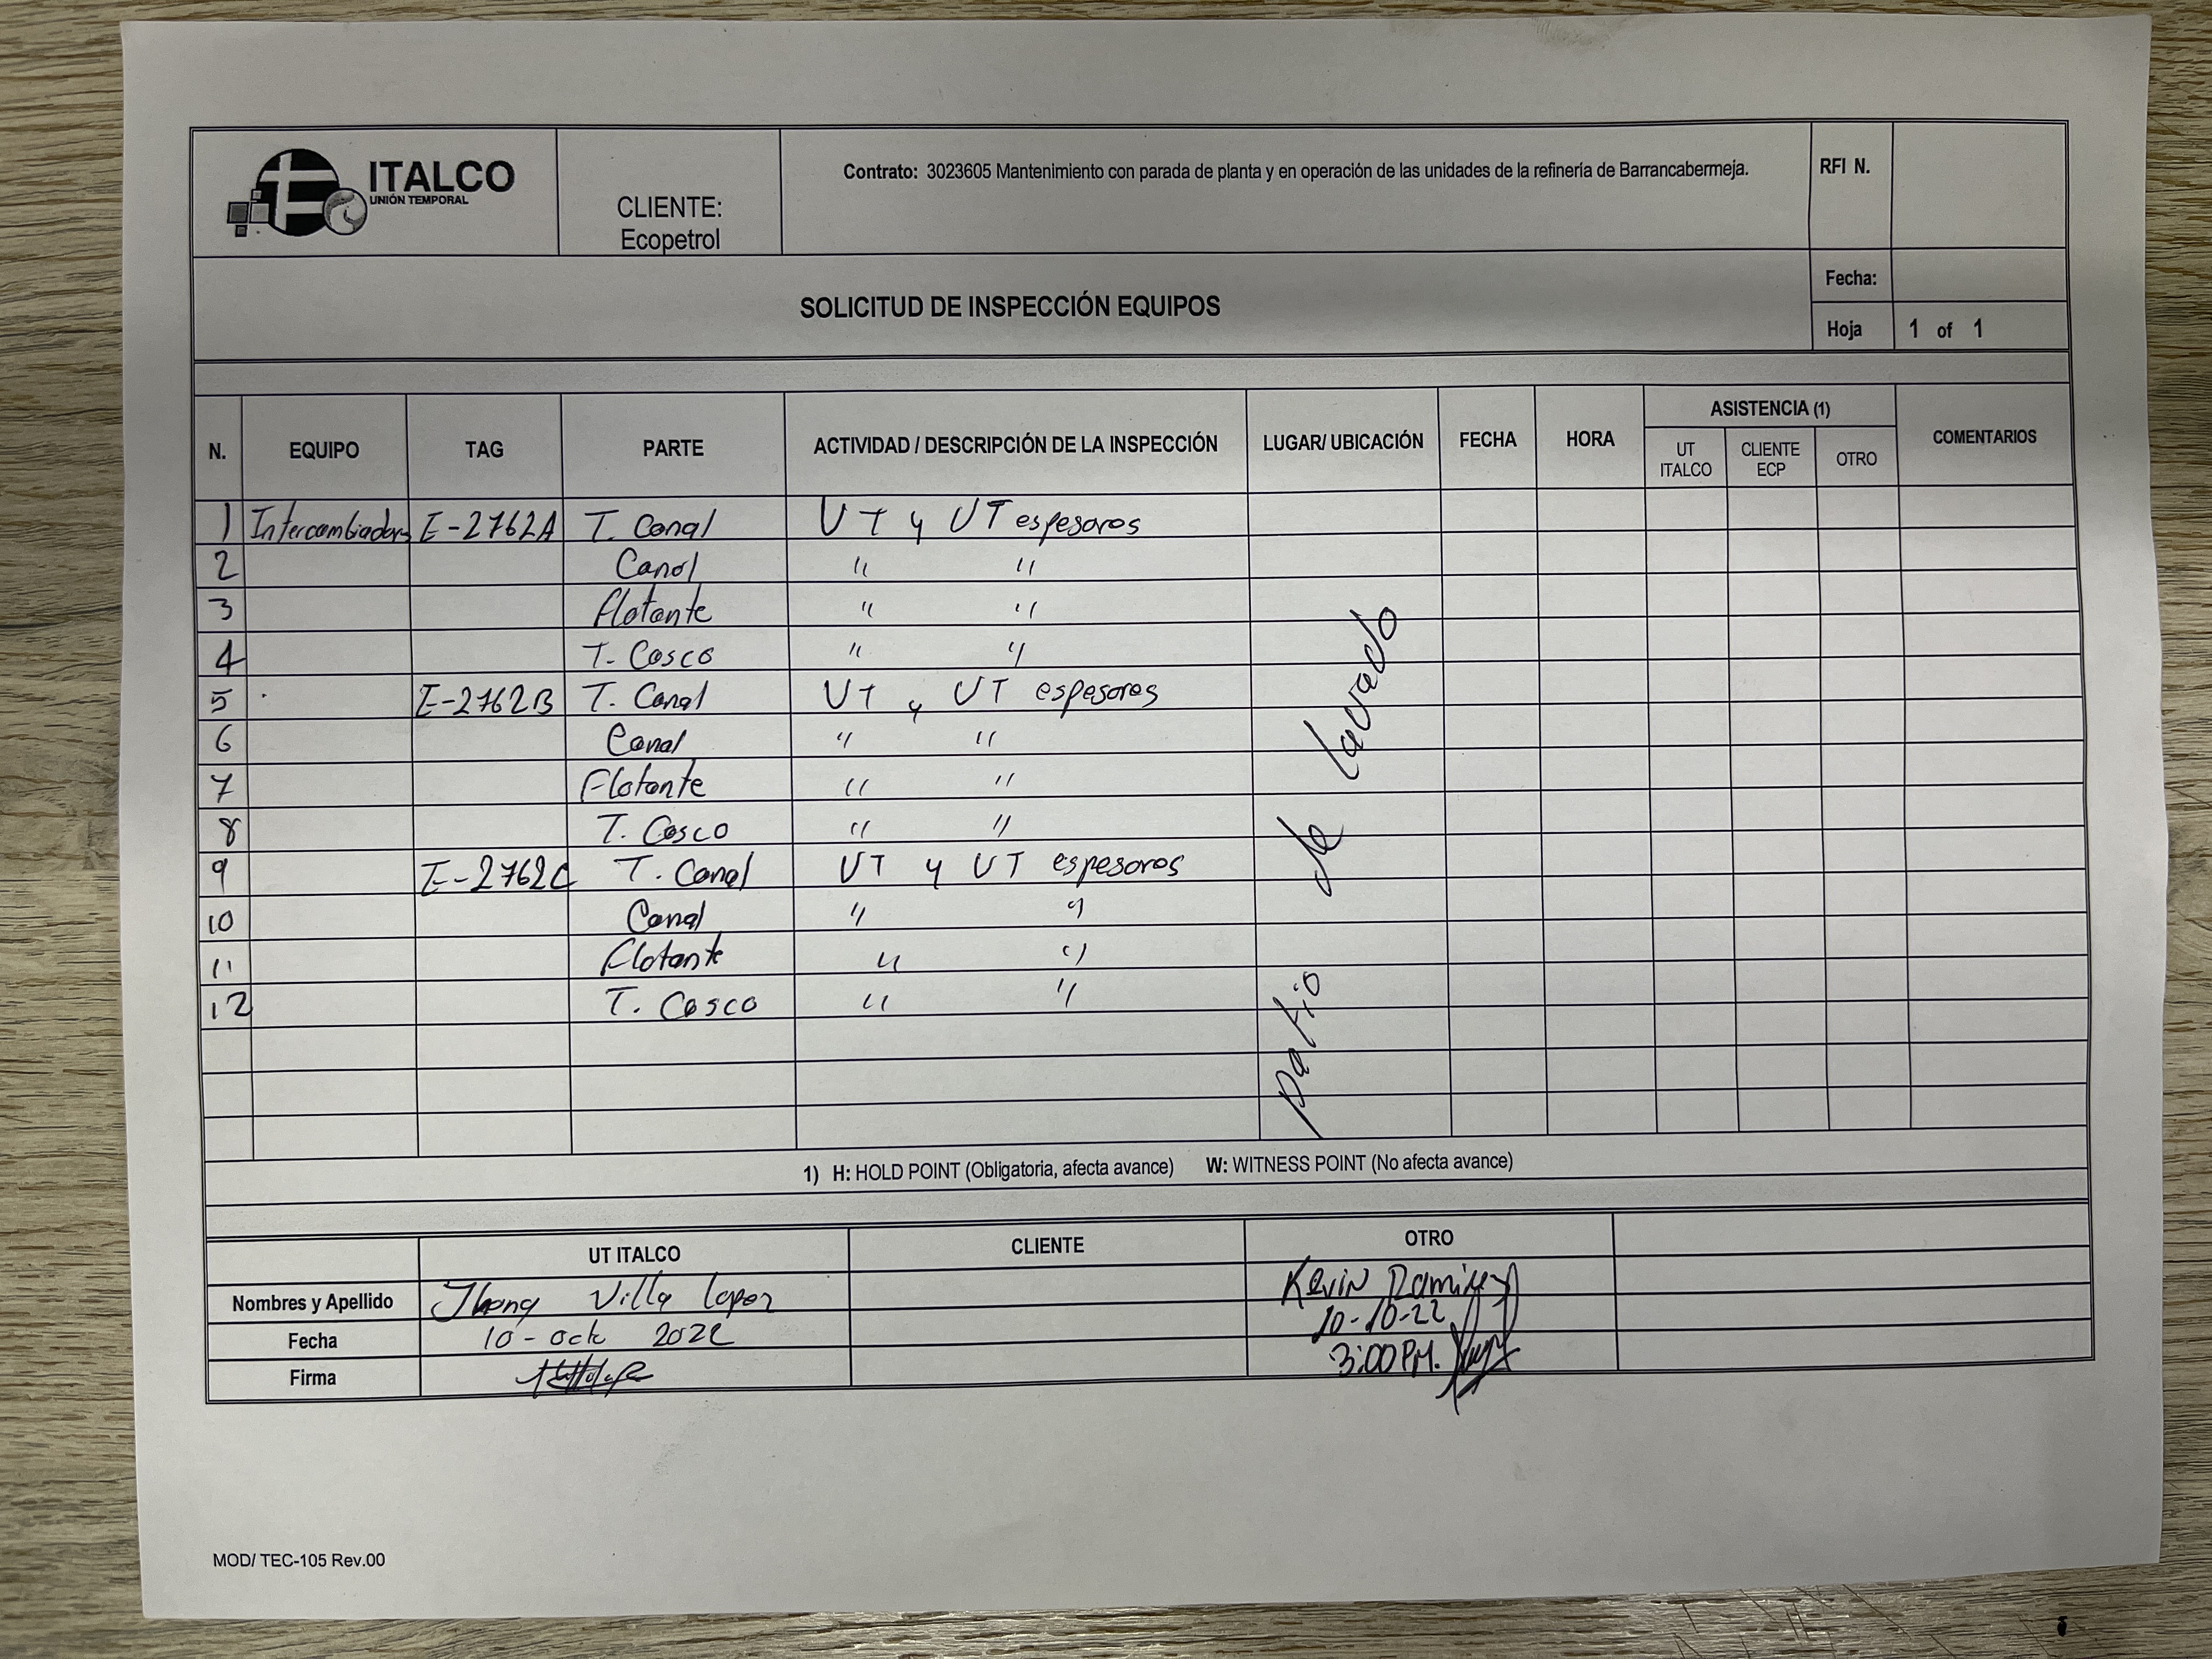 ITALCO
UNIÓN TEMPORAL
CLIENTE:
Ecopetrol
Contrato: 3023605 Mantenimiento con parada de planta y en operación de las unidades de la refinería de Barrancabermeja.
RFI N.
SOLICITUD DE INSPECCIÓN EQUIPOS
Fecha:
Hoja 1 of 1
N. EQUIPO TAG PARTE ACTIVIDAD / DESCRIPCIÓN DE LA INSPECCIÓN LUGAR/ UBICACIÓN FECHA HORA ASISTENCIA (1) COMENTARIOS
UT ITALCO CLIENTE ECP OTRO
1 Intercambiadores E-2762A T. Canal UT y UT espesores
2 Canal " "
3 Flotante " "
4 T. Casco " "
5 E-2762B T. Canal UT y UT espesores
6 Canal " "
7 Flotante " "
8 T. Casco " "
9 E-2762C T. Canal UT y UT espesores
10 Canal " "
11 Flotante " "
12 T. Casco " "
patio de lavado
1) H: HOLD POINT (Obligatoria, afecta avance) W: WITNESS POINT (No afecta avance)
UT ITALCO CLIENTE OTRO
Nombres y Apellido Jhony Villa Lopez Kevin Ramirez
Fecha 10-oct 2022 10-10-22
Firma 3:00 PM.
MOD/ TEC-105 Rev.00